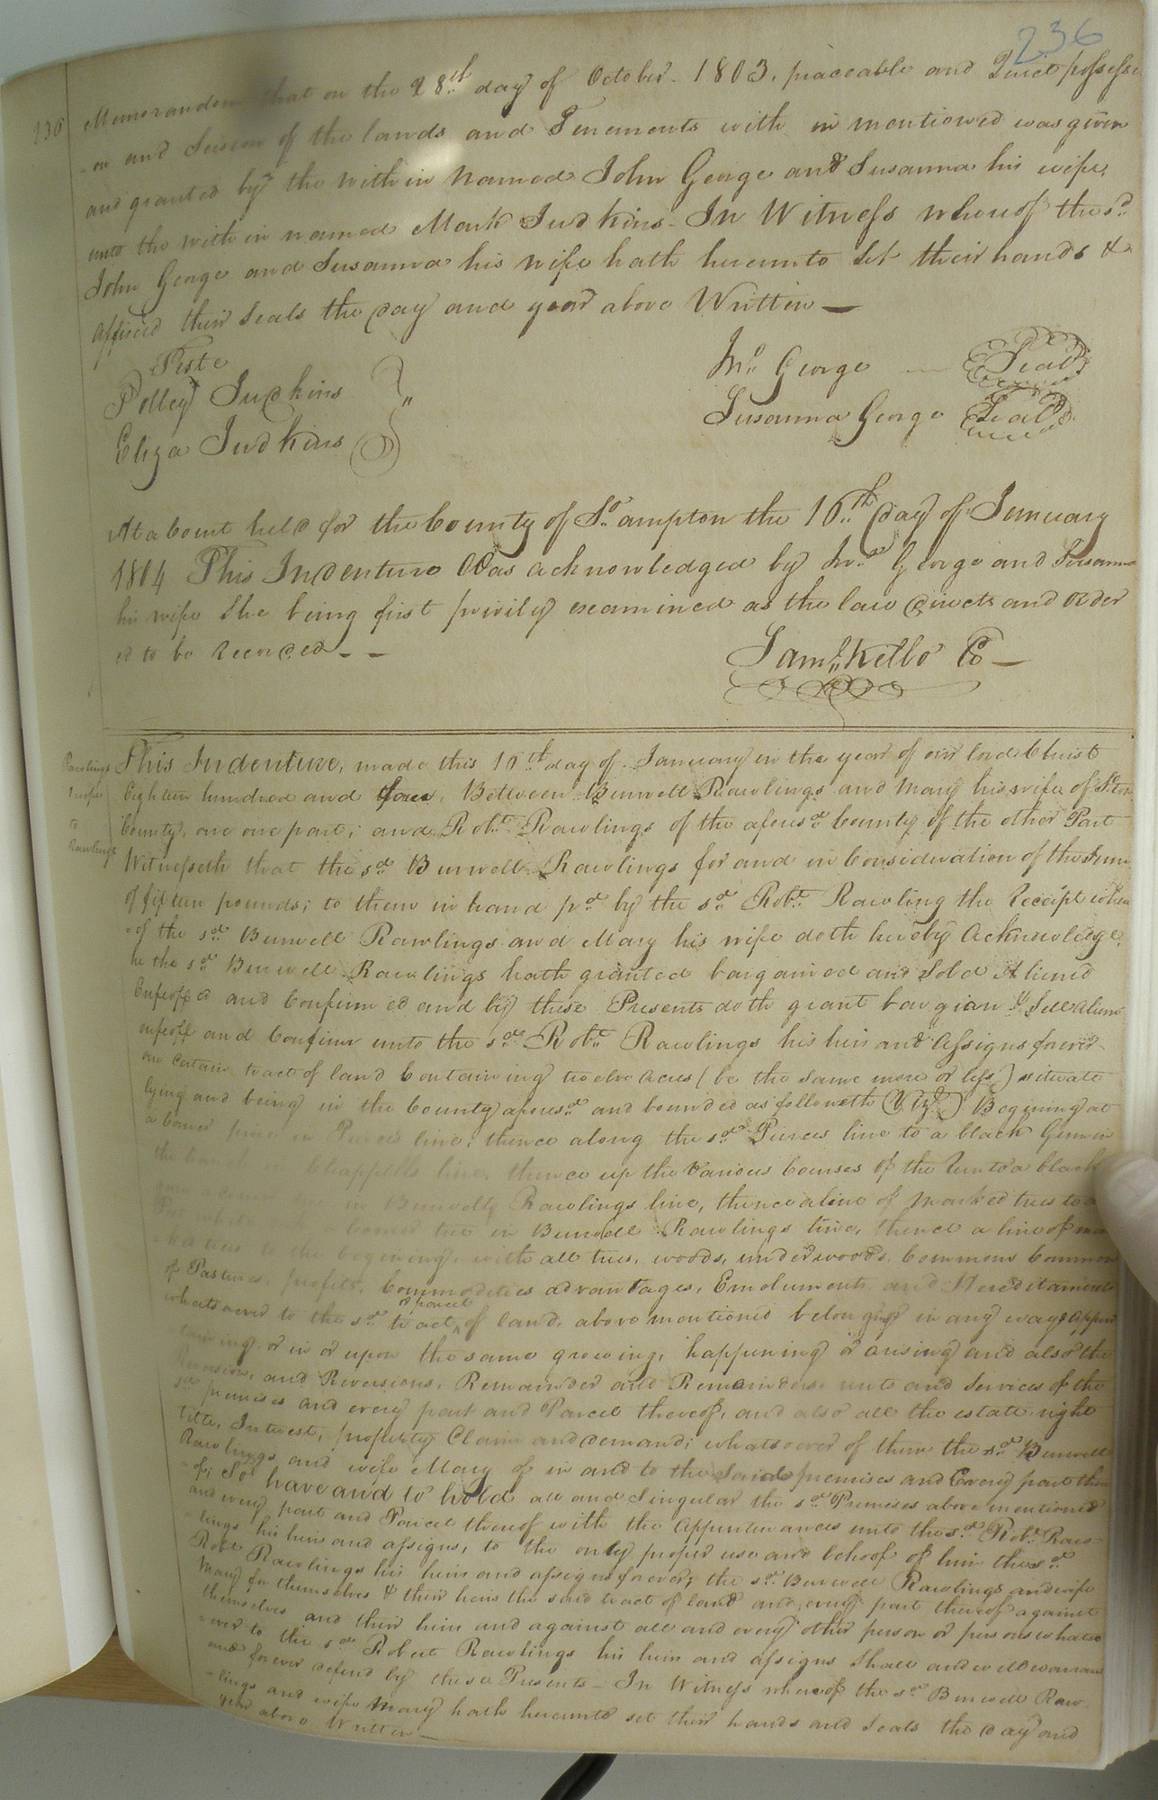 236
136
Memorandum that on the 28th day of October 1803, peaceable and Quiet possessi
-on and Seison of the lands and Tenements with in mentioned was given
and granted by the within Named John George and Susanna his wife,
unto the with in named Mark Judkins - In Witness whereof the sd.
John George and Susanna his wife hath hereunto Set their hands &
affixed their Seals the day and year above Written —
Teste
Polley Judkins
Eliza Judkins
Jno. George Seal
Susanna George Seal
At a Court held for the County of So. ampton the 16th day of January
1804 This Indenture Was acknowledged by Jno. George and Susanna
his wife She being first privily examined as the law directs and order
ed to be Recorded - -
Saml. Kello Cl —
Rawlings
& wife
to
Rawlings
This Indenture, made this 16th day of January in the year of our lord Christ
Eighteen hundred and four, Between Burwell Rawlings and Mary his wife of
County, on one part; and Robt. Rawlings of the aforesd. County of the other Part
Witnesseth that the sd. Burwell Rawlings for and in Consideration of the Sum
of fifteen pounds; to them in hand pd. by the sd. Robt. Rawling the Receipt where
-of the sd. Burwell Rawlings and Mary his wife doth hereby Acknowledge,
he the sd. Burwell Rawlings hath granted bargained and Sold Aliend
Enfeoffed and Confirmed and by these Presents doth grant bargian Sell Alien
enfeoff and Confirm unto the sd. Robt. Rawlings his heirs and Assigns forever
one Certain tract of land Containing twelve Acres (be the same more or less) situate
lying and being in the County aforesd. and bounded as followeth (Vizd) Begining at
a corner pine in Pierces line; thence along the sd. Pierces line to a black Gum in
the in Clappells line, thence up the Various Courses of the Run to a black
gum a corner in Burwells Rawlings line, thence a line of Marked trees to a
a corner tree in Burwell Rawlings line, thence a line of mar
-ked trees to the begining, with all trees, woods, underwoods, Commons Common
of Pastures, profits, Commodities advantages, Emoluments and Hereditaments
whatsoever to the sd. tract or parcel of land, above mentioned belonging in any ways Apper
-taining or in or upon the same growing, happening or arising and also the
Revesion, and Reversions, Remainder and Remainders, rents and Services of the
sd. premises and every part and Parcel thereof, and also all the estate, right
title, Interest, property Claim and demand; whatsoever of them the sd. Burwell
Rawlings and wife Mary of in and to the Said premises and Every part there
-of; To have and to hold all and Singular the sd. Premises above mentioned
and every part and Parcel thereof with the Appurtenances unto the sd. Robt. Raw-
-lings his heirs and assigns, to the only proper use and behoof of him the sd.
Robt. Rawlings his heirs and assigns forever; the sd. Burwell Rawlings and wife
Mary for themselves & their heirs the said tract of land and every part thereof against
themselves and their heirs and against all and every other person or persons whatso
-ever to the sd. Robert Rawlings his heirs and assigns Shall and will warrant
and forever defend by these Presents - In Witness whereof the sd. Burwell Raw-
-lings and wife Mary hath hereunto set their hands and Seals the day and
year above Written —